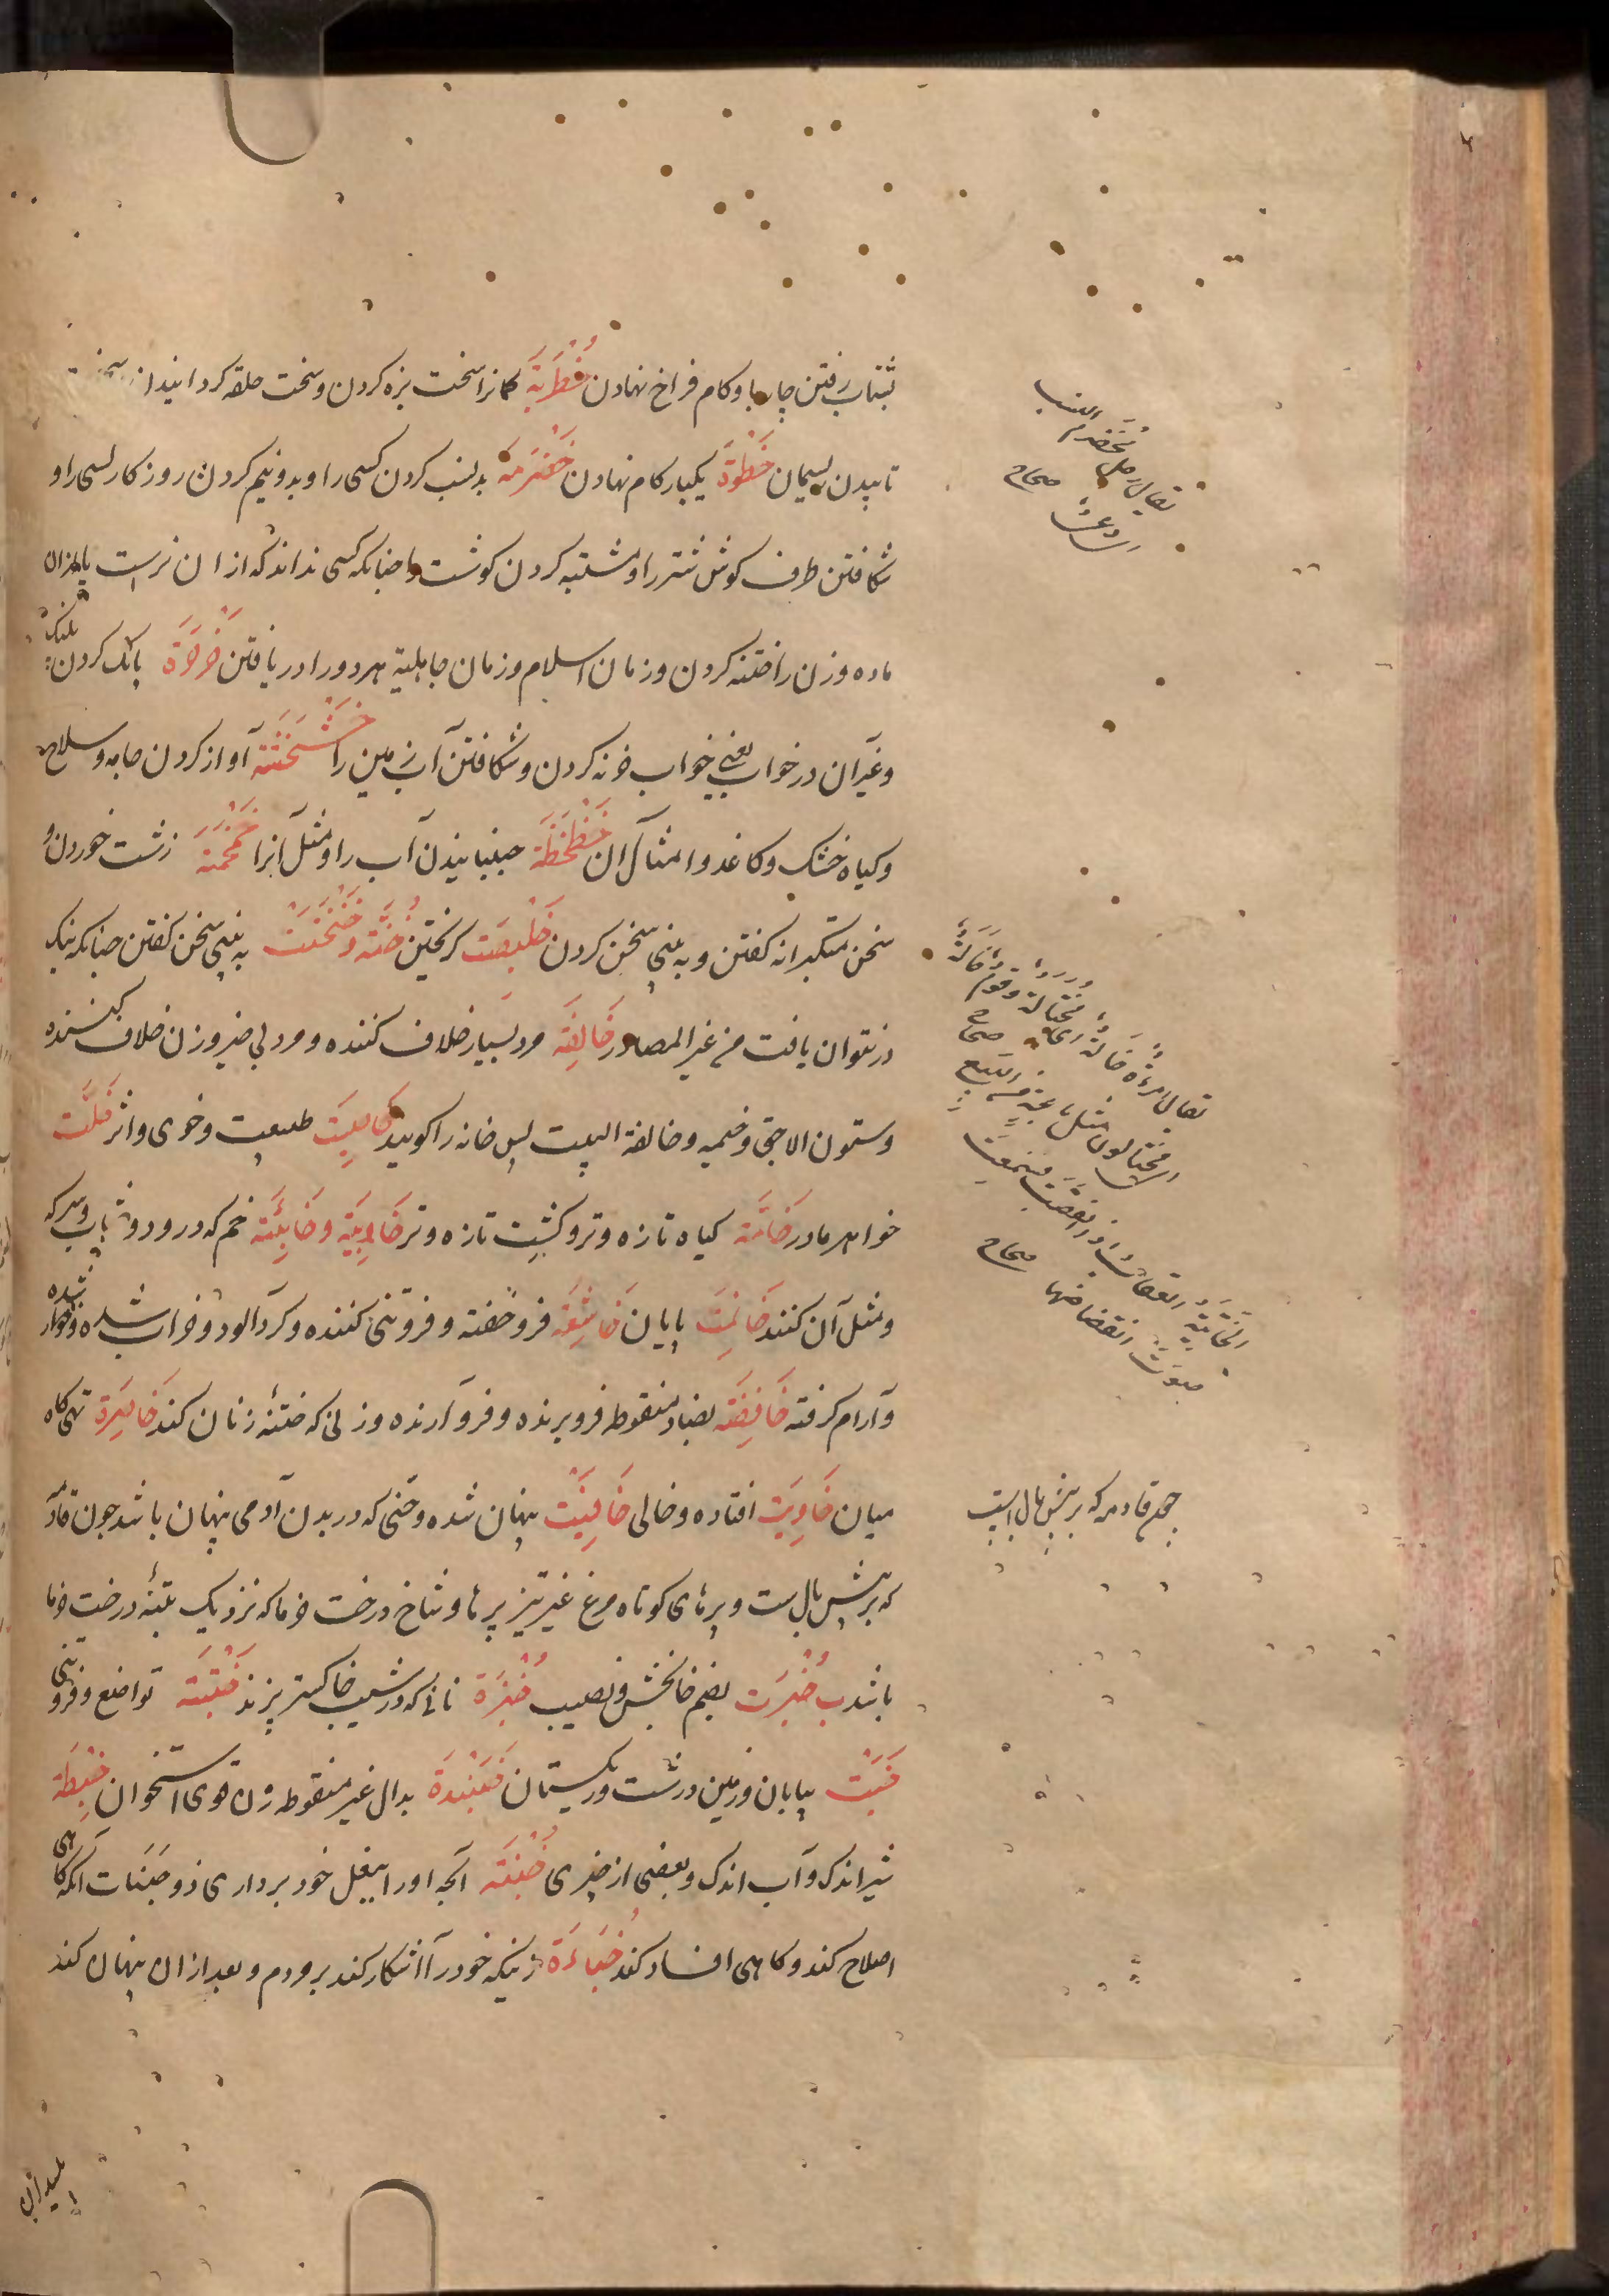 بشتاب رفتن چارپا و کام فراخ نهادن خُطْرَبَة کمانرا سخت بزه کردن و سخت حلقه کردانیدن
تابیدن ریسمان خَطْوَة یکبار کام نهادن خَضْرَمَه بدنسب کردن کسی را و بدونیم کردن روزکار کسی را و
شکافتن طرف کوش شتر را و مشتبه کردن کوشت را چنانکه کسی نداند که از آن نرست یا از آن
ماده و زن را ختنه کردن و زمان اسلام و زمان جاهلیة هر دو را دریافتن خَرْخَرَة بانک کردن پلنک
و غیر آن در خواب یعنی خواب خره کردن و شکافتن آب زمین را خَشْخَشَة آواز کردن جامه و سلاح
و کیاه خشک و کاغذ و امثال آن خَضْخَضَة جنبانیدن آب را و مثل آنرا خَمْخَمَة زشت خوردن و
سخن متکبرانه کفتن و به بینی سخن کردن خَلْبَصَت کریختن خُنَّه و خَنْخَنَت به بینی سخن کفتن چنانکه نیک
در نتوان یافت من غیر المصادر خَالِفَة مرد بسیار خلاف کننده و مرد بی خیر و زن خلاف کننده
و ستون الاچق و خیمه و خالفة البیت پس خانه را کویند خَاصِیَت طبیعت و خوی و اثر خَالَت
خواهر مادر خَامَة کیاه تازه و تر و کشت تازه و تر خَابِیَة و خَابِئَة خم که در و دوشاب و سرکه
و مثل آن کنند خَاتِمَت پایان خَاشِعَة فرو خفته و فروتنی کننده و کرد آلود و خراب شده و خوار شده
و آرام کرفته خَافِضَة بضاد منقوطه فرو برنده و فرو آرنده و زنی که ختنه زنان کند خَاصِرَة تهی کاه
میان خَاوِیَت افتاده و خالی خَافِیَت پنهان شده و جنی که در بدن آدمی پنهان باشد چون قادمه
که بر پیش بال است و پرهای کوتاه مرغ غیر تیز پرها و شاخ درخت خرما که نزدیک بتنهٔ درخت خرما
باشد ب خُبْرَت بضم خا بخش و نصیب خُبْزَة نانی که در شیب خاکستر پزند خَبْتَة تواضع و فروتنی
خَبْت بیابان و زمین درشت و ریکستان خَبَنْدَة بدال غیر منقوطه زن قوی استخوان خِبْطَة
شیر اندک و آب اندک و بعضی از چیزی خُبْنَة آنچه او را ببغل خود برداری ذو خَبَنَات آنکه کاهی
اصلاح کند و کاهی افساد کند خُبَاءَة زنیکه خود را آشکار کند بر مردم و بعد از آن پنهان کند
یقال رجل مُخَضْرَم النسب
ای دعی صحاح
یقال امرأة خالة ای مختالة و قوم خالة
ای مختالون مثل باعة من البیع صحاح
الخائتة العقاب اذا انقضت فسمعت
صوت انقضاضها صحاح
جمع قادمه که بر پیش بال است